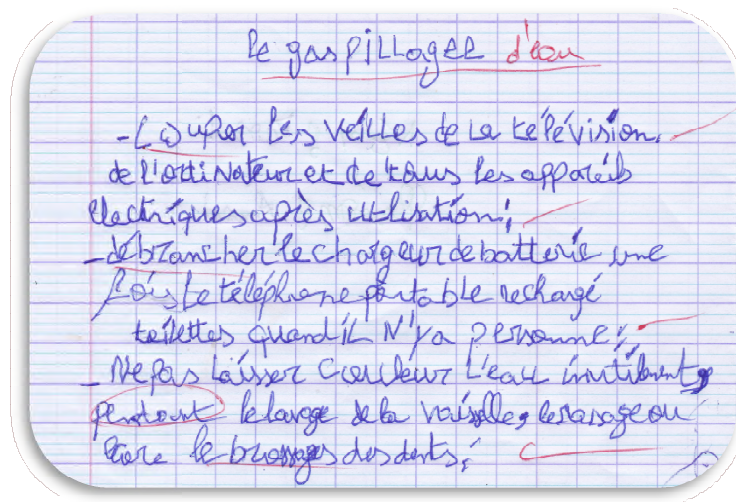 Le gaspillager d'eau
- Couper les veilles de la télévision,
de l'ordinateur et de tous les appareils
électriques après utilisation;
- débrancher le chargeur de batterie une
fois le téléphone portable rechargé
toilettes quand il N'y a personne;
- Ne pas laisser Couleur L'eau inutilement,
pendant le lavage de la vaisselle, le rasage ou
le brossages des dents;